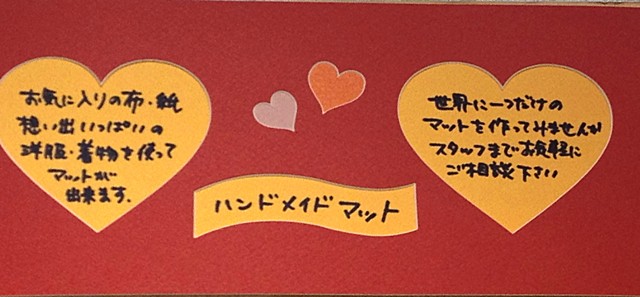 お気に入りの布・紙
想い出いっぱいの
洋服・着物を使って
マットが
出来ます.
ハンドメイドマット
世界に一つだけの
マットを作ってみませんか
スタッフまでお気軽に
ご相談下さい